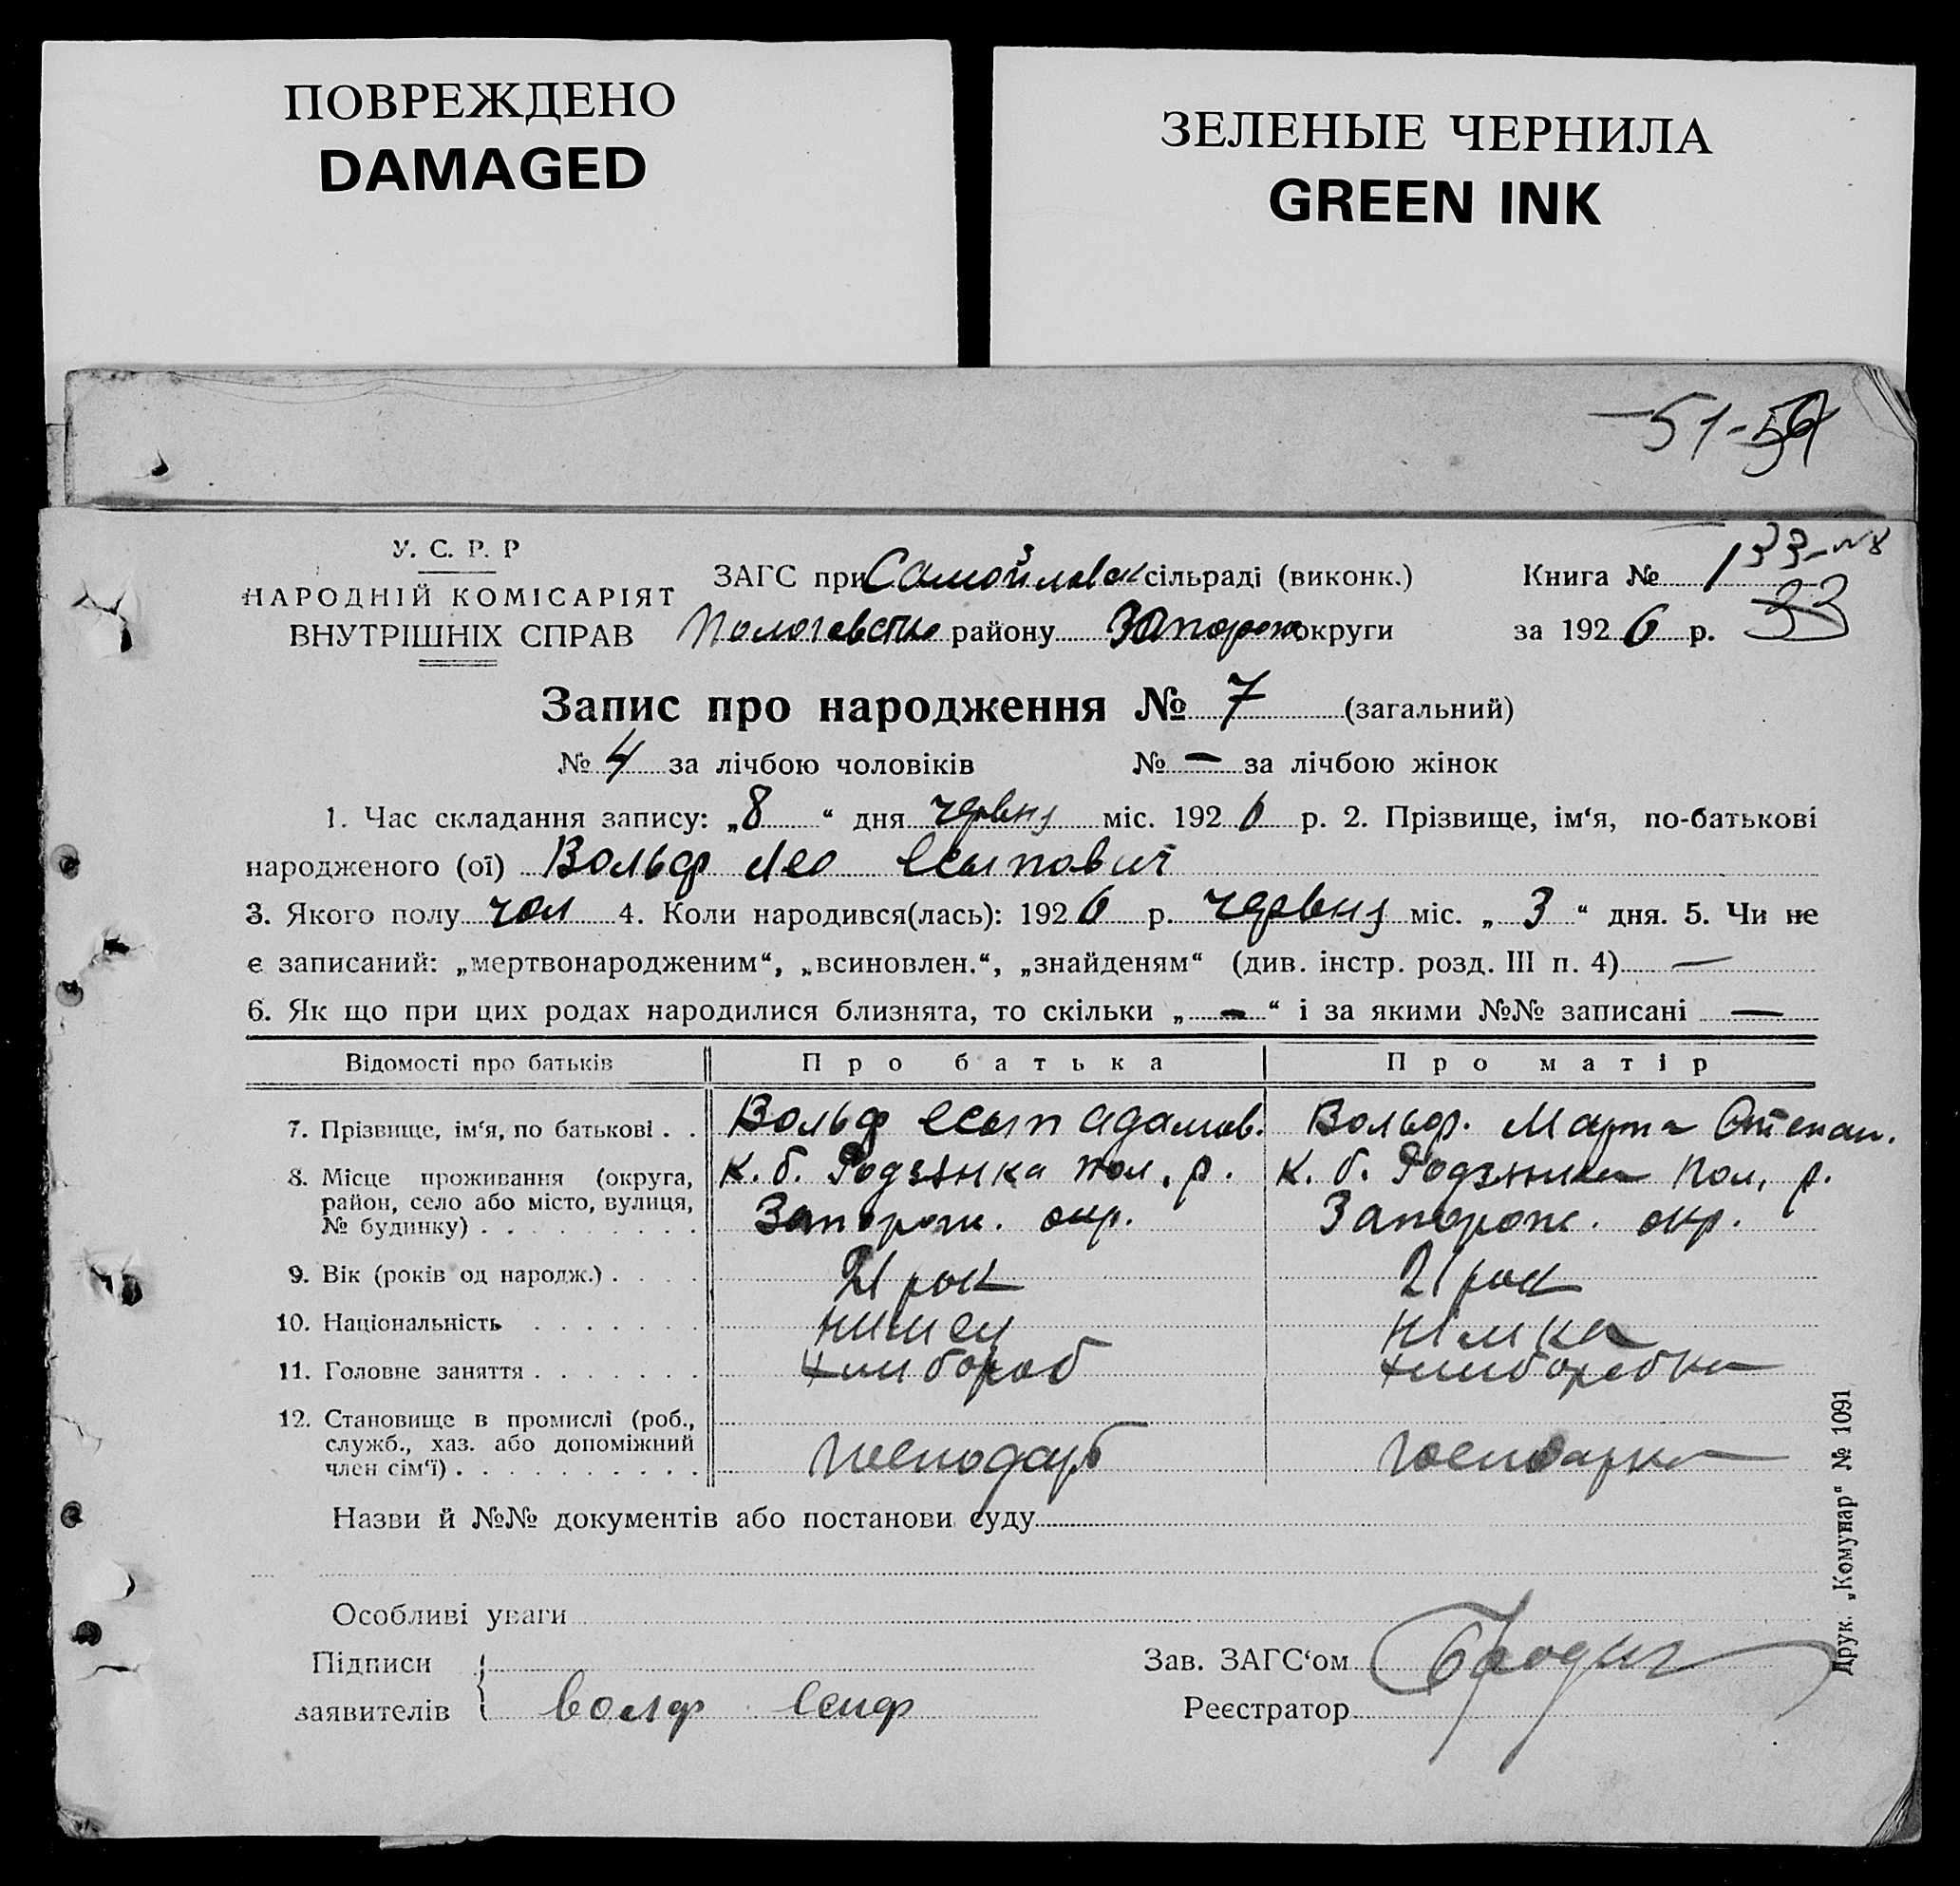 ПОВРЕЖДЕНО
DAMAGED
ЗЕЛЕНЫЕ ЧЕРНИЛА
GREEN INK
51-
У. С. Р. Р
НАРОДНІЙ КОМІСАРІЯТ
ВНУТРІШНІХ СПРАВ
ЗАГС при Самойловск сільраді (виконк.)
Пологовсько району Запорож округи
Книга № 1
за 1926 р.
33
Запис про народження № 7 (загальний)
№ 4 за лічбою чоловіків № — за лічбою жінок
1. Час складання запису: „8“ дня червня міс. 1926 р. 2. Прізвище, ім‘я, по-батькові
народженого (ої) Вольф Лео Есыпович
3. Якого полу чол 4. Коли народився(лась): 1926 р. червня міс. „3“ дня. 5. Чи не
є записаний: „мертвонародженим“, „всиновлен.“, „знайденям“ (див. інстр. розд. III п. 4) —
6. Як що при цих родах народилися близнята, то скільки „—“ і за якими №№ записані —
Відомості про батьків Про батька Про матір
7. Прізвище, ім‘я, по батькові . . Вольф Есып Адамов. Вольф. Марта Степан.
8. Місце проживання (округа, район, село або місто, вулиця, № будинку) К. б. Родзянка пол. р. Запорож. окр. К. б. Родзянка пол. р. Запорож. окр.
9. Вік (років од народж.) 21 рок 21 рок
10. Національність нимец німка
11. Головне заняття хлибороб хлиборобка
12. Становище в промислі (роб., служб., хаз. або допоміжний член сім‘ї) господарь господарка
Назви й №№ документів або постанови суду
Особливі уваги
Підписи
заявителів Волф Есиф
Зав. ЗАГС‘ом
Реєстратор
Друк. „Комунар“ № 1091